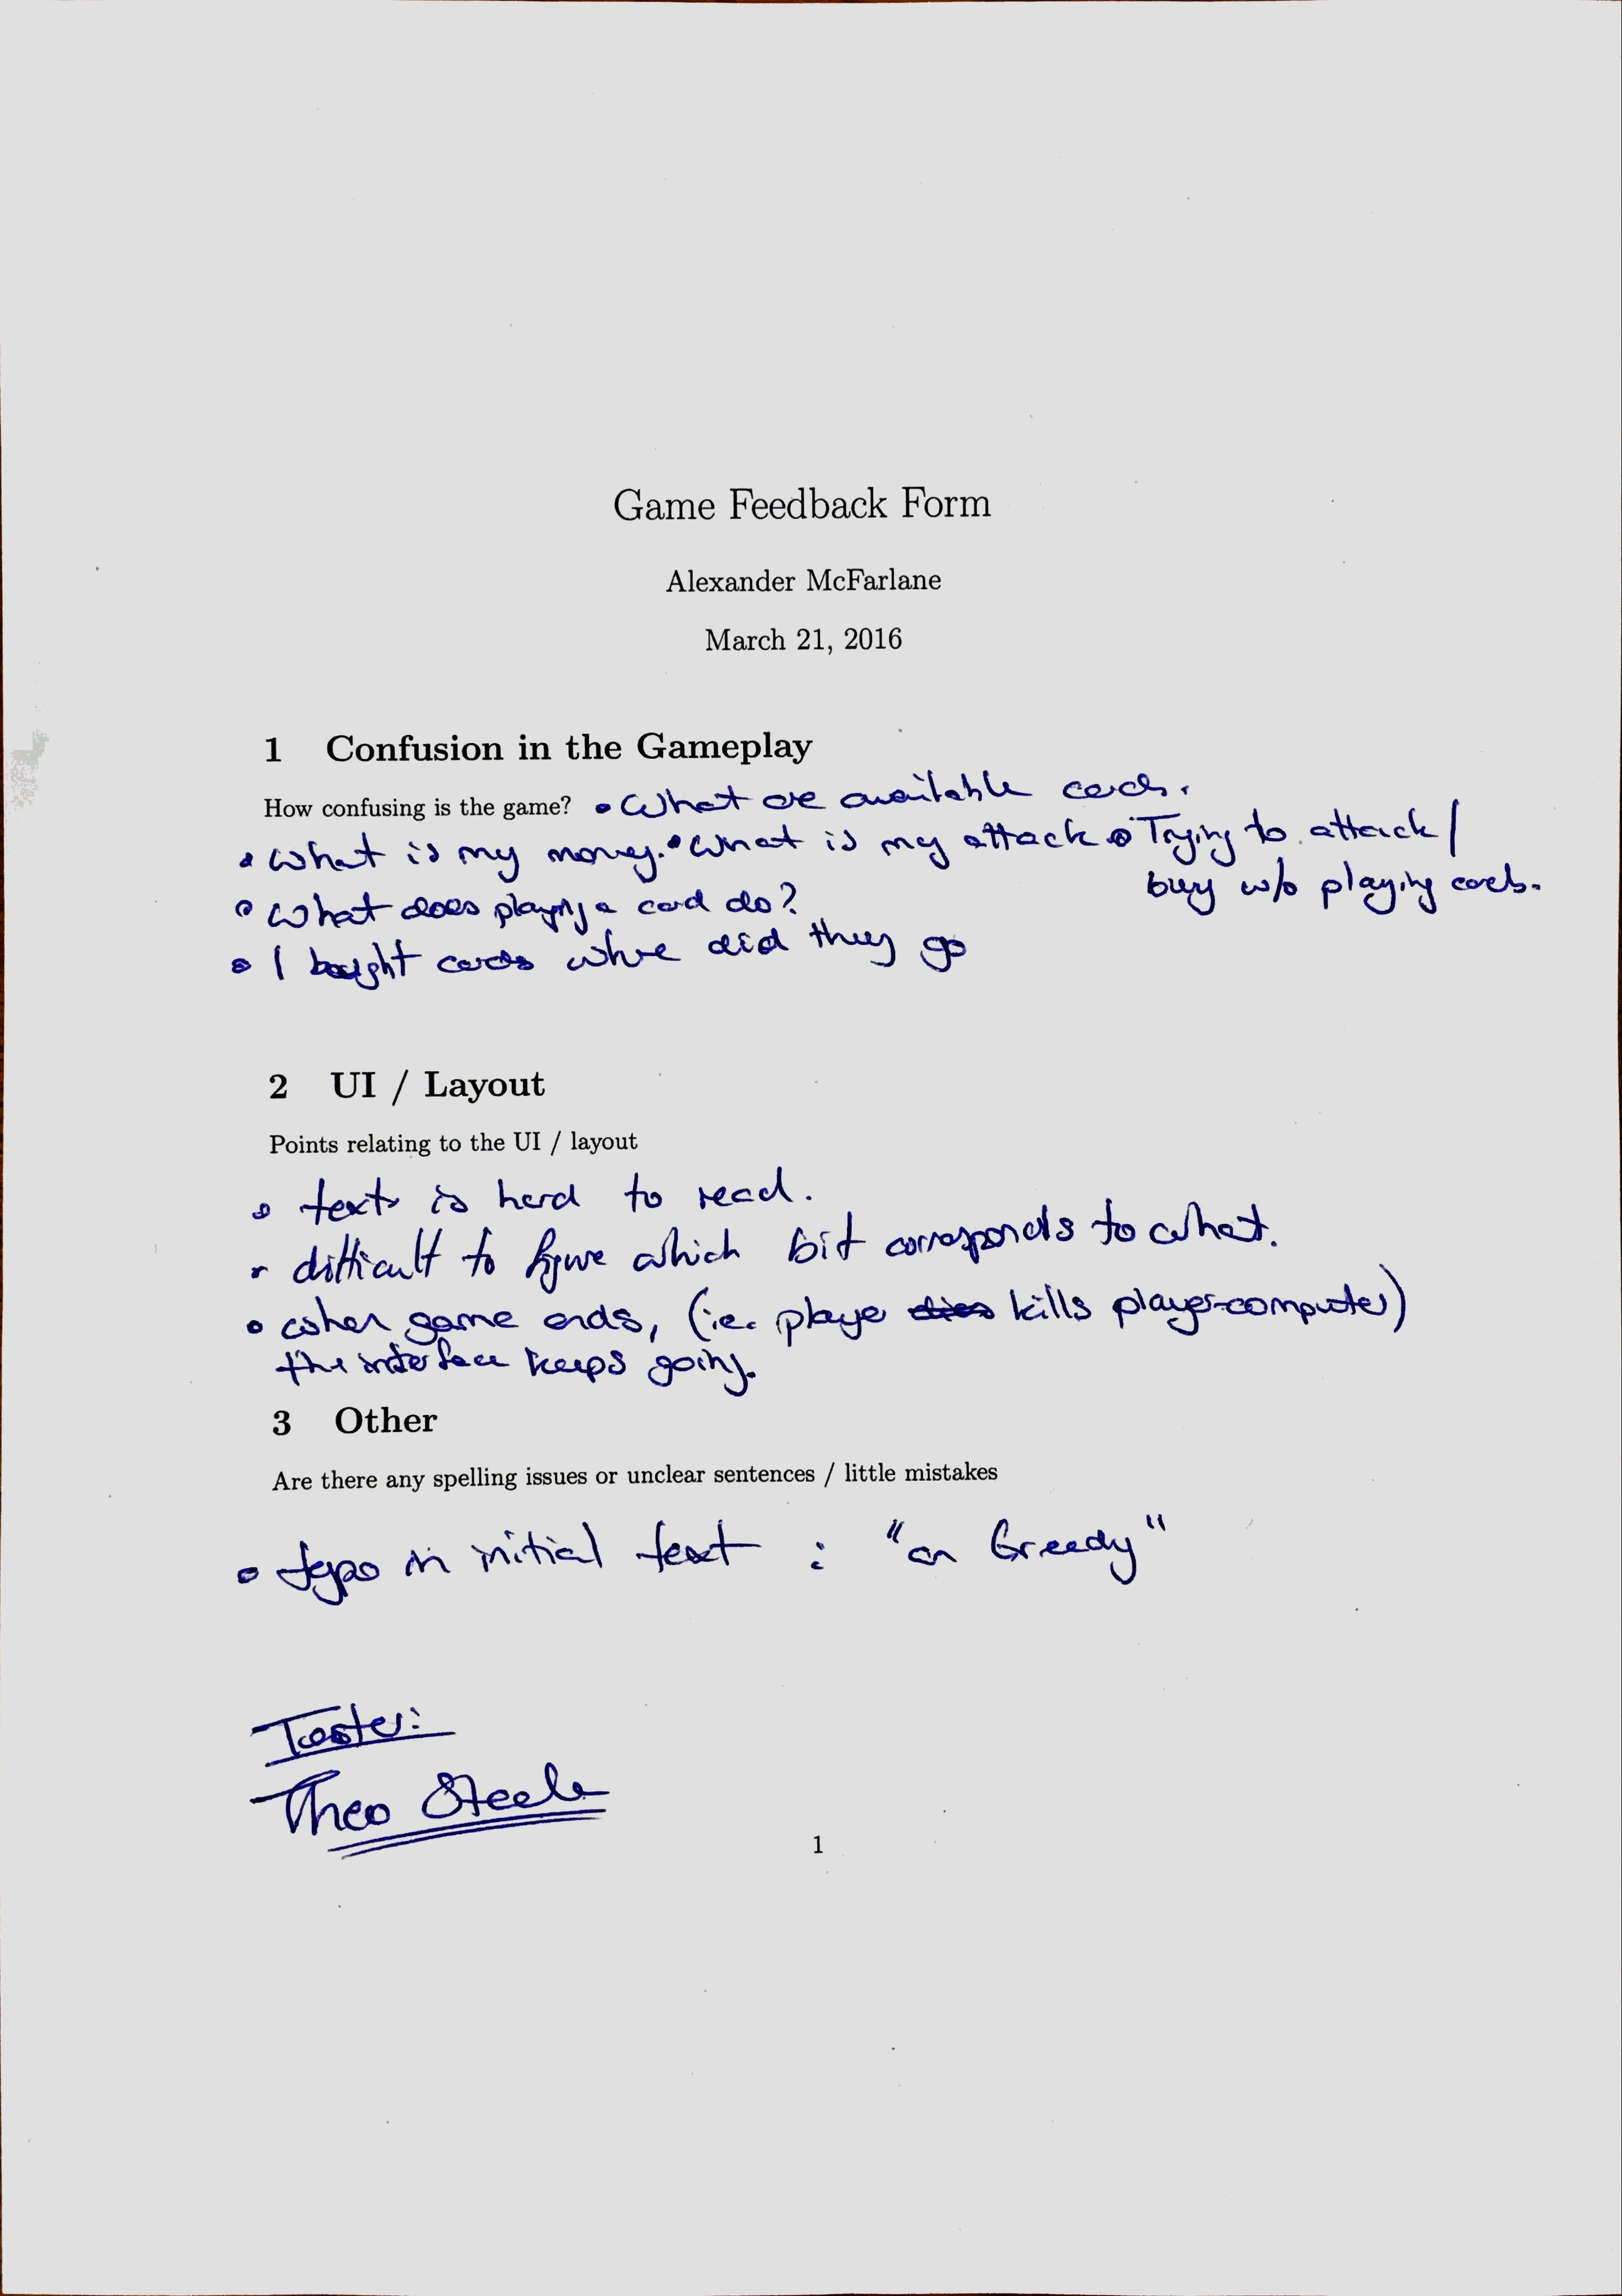 Game Feedback Form
Alexander McFarlane
March 21, 2016
1 Confusion in the Gameplay
How confusing is the game? • What are available cards.
• What is my money. • What is my attack • Trying to attack /
buy w/o playing cards.
• What does playing a card do?
• I bought cards where did they go
2 UI / Layout
Points relating to the UI / layout
• text is hard to read.
• difficult to figure which bit corresponds to what.
• when game ends, (i.e. player dies kills player-computer)
the interface keeps going.
3 Other
Are there any spelling issues or unclear sentences / little mistakes
• typo in initial text : "an Greedy"
Tester:
Theo Steele
1